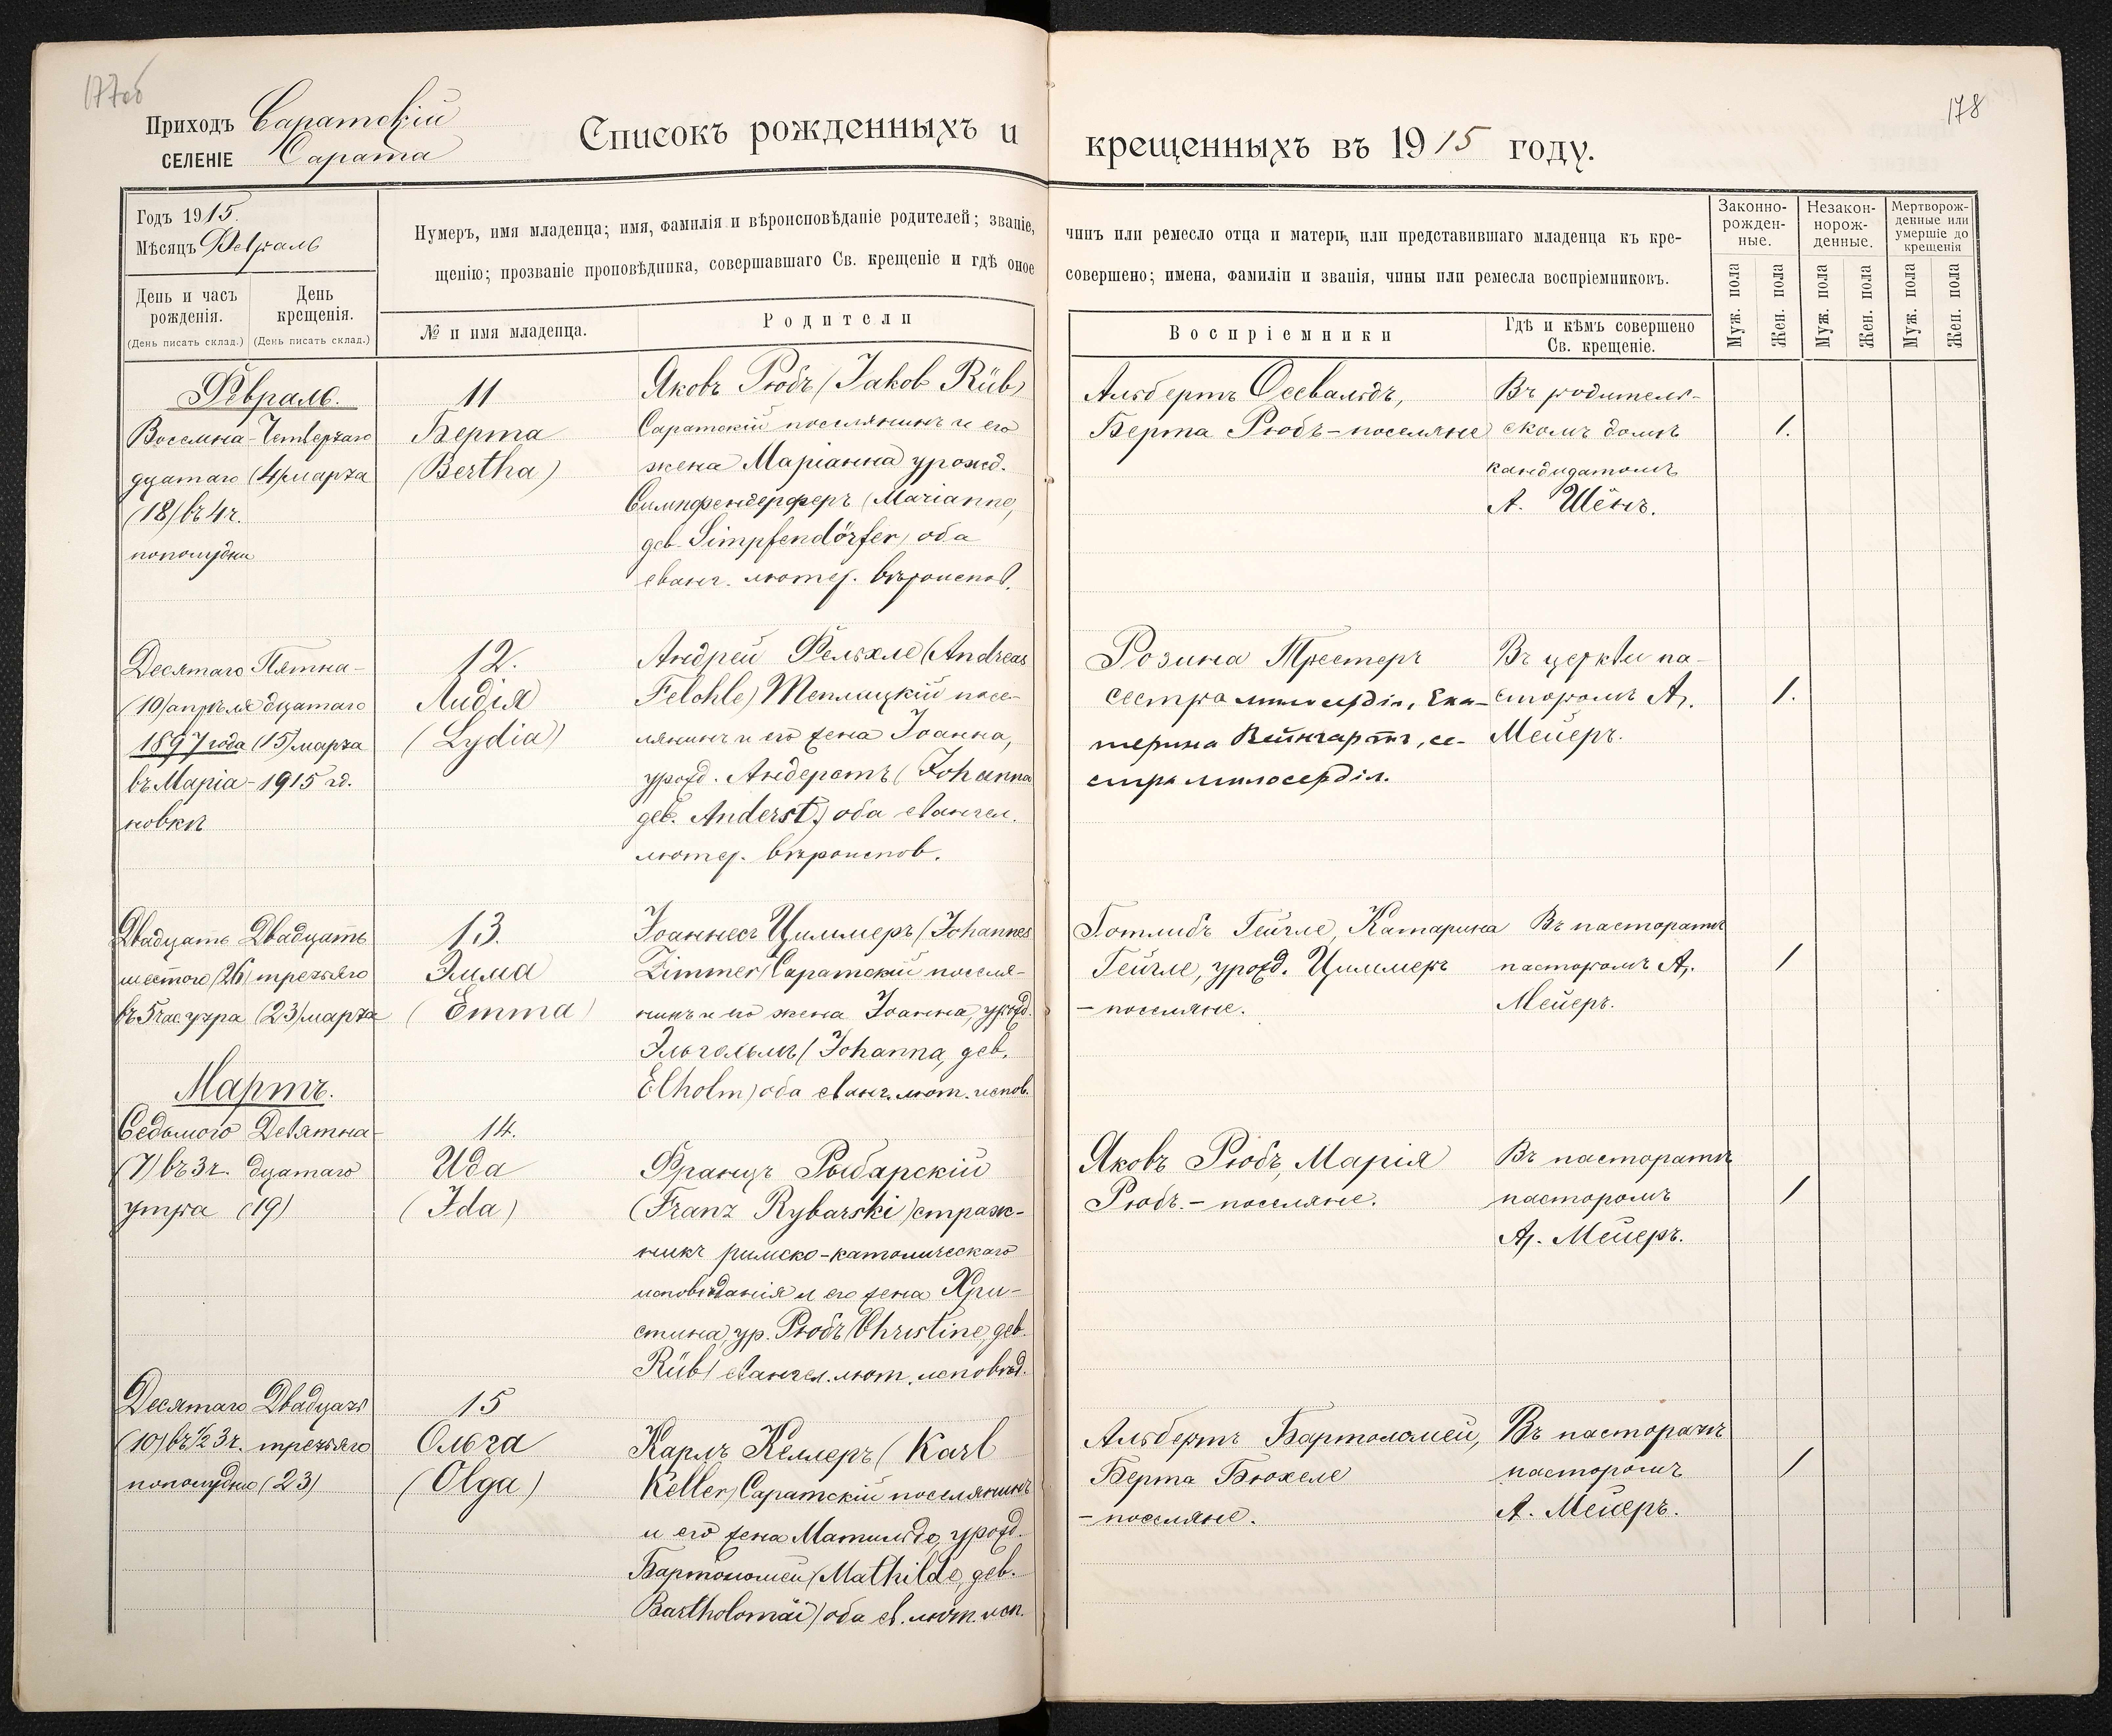 177об
178
Приходъ Саратскій
СЕЛЕНІЕ Сарата
Списокъ рожденныхъ и крещенныхъ въ 1915 году.
Годъ 1915.
Мѣсяцъ Февраль
День и часъ рожденія.
(День писать склад.)
День крещенія.
(День писать склад.)
Нумеръ, имя младенца; имя, фамилія и вѣроисповѣданіе родителей; званіе, чинъ или ремесло отца и матери, или представившаго младенца къ кре-
щенію; прозваніе проповѣдника, совершавшаго Св. крещеніе и гдѣ оное совершено; имена, фамиліи и званія, чины или ремесла воспріемниковъ.
№ и имя младенца.
Родители
Воспріемники
Гдѣ и кѣмъ совершено
Св. крещеніе.
Законно-
рожден-
ные.
Незакон-
норож-
денные.
Мертворож-
денные или
умершіе до
крещенія
Муж. пола
Жен. пола
Муж. пола
Жен. пола
Муж. пола
Жен. пола
Февраль.
Восемна-
дцатаго
(18) въ 4 ч.
пополудни
Четвертаго
(4) марта
11
Берта
(Bertha)
Яковъ Рюбъ (Jakob Rüb)
Саратскій поселянинъ и его
жена Маріанна урожд.
Симпфендерферъ (Marianne,
геб. Simpfendörfer) оба
еванг. лютер. вѣроиспов.
Альбертъ Оссвальдъ,
Берта Рюбъ - поселяне
Въ родитель-
скомъ домѣ
кандидатомъ
А. Шёнъ.
1.
Десятаго
(10) апрѣля
1897 года
въ Маріа-
новкѣ
Пятна-
дцатаго
(15) марта
1915 гд.
12.
Лидія
(Lydia)
Андрей Фельхле (Andreas
Felchle) Теплицкій посе-
лянинъ и его жена Іоанна,
урожд. Андерстъ (Johanna
геб. Anderst) оба евангел.
лютер. вѣроиспов.
Розина Трестеръ
сестра милосердія, Ека-
терина Вейнгартъ, се-
стра милосердія.
Въ церкви па-
сторомъ А.
Мейеръ.
1.
Двадцать
шестого (26)
въ 5 час. утра
Двадцать
третьяго
(23) марта
13.
Эмма
(Emma)
Іоаннесъ Циммеръ (Johannes
Zimmer) Саратскій поселя-
нинъ и его жена Іоанна, урожд.
Эльгольмъ (Johanna, геб.
Elholm) оба еванг. лют. испов.
Готлибъ Гейгле, Катарина
Гейгле, урожд. Циммеръ
- поселяне.
Въ пасторатѣ
пасторомъ А.
Мейеръ.
1
Мартъ.
Седьмого
(7) въ 3 ч.
утра
Девятна-
дцатаго
(19)
14.
Ида
(Ida)
Францъ Рыбарскій
(Franz Rybarski) страж-
никъ римско-католическаго
исповѣданія и его жена Хри-
стина, ур. Рюбъ (Christine, геб.
Rüb) евангел. лют. исповѣд.
Яковъ Рюбъ, Марія
Рюбъ. - поселяне.
Въ пасторатѣ
пасторомъ
А. Мейеръ.
1
Десятаго
(10) въ ½ 3 ч.
пополудни
Двадцать
третьяго
(23)
15
Ольга
(Olga)
Карлъ Келлеръ (Karl
Keller) Саратскій поселянинъ
и его жена Матильда, урожд.
Бартоломей (Mathilde, геб.
Bartholomäi) оба ев. лют. исп.
Альбертъ Бартоломей,
Берта Бюхеле
- поселяне.
Въ пасторатѣ
пасторомъ
А. Мейеръ.
1